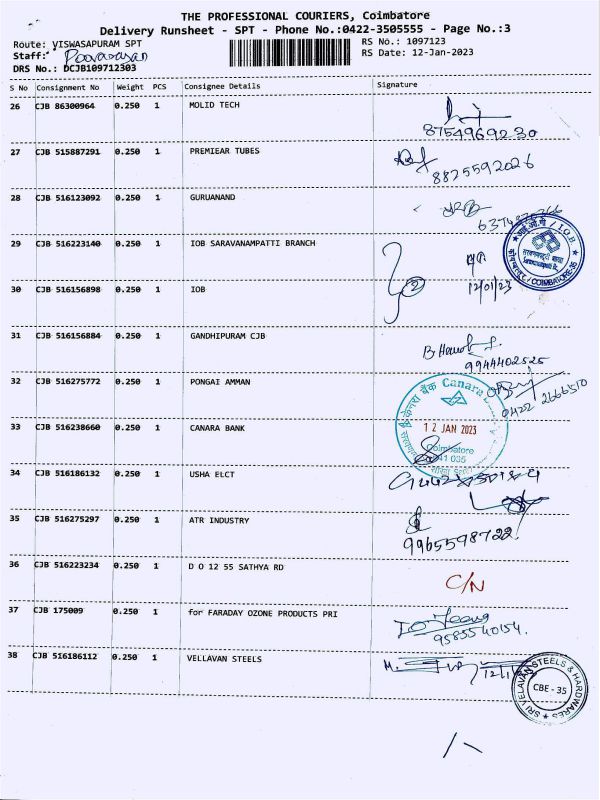 THE PROFESSIONAL COURIERS, Coimbatore
Delivery Runsheet - SPT - Phone No.:0422-3505555 - Page No.:3
Route: VISWASAPURAM SPT
RS No.: 1097123
Staff:
RS Date: 12-Jan-2023
DRS No.: DCJB109712303
S No Consignment No Weight PCS Consignee Details Signature
26 CJB 86300964 0.250 1 MOLID TECH
8754969230
27 CJB 515887291 0.250 1 PREMIEAR TUBES
8825592026
28 CJB 516123092 0.250 1 GURUANAND
29 CJB 516223140 0.250 1 IOB SARAVANAMPATTI BRANCH
I.O.B
COIMBATORE-35
30 CJB 516156898 0.250 1 IOB
2 12/01/23
31 CJB 516156884 0.250 1 GANDHIPURAM CJB
9944402525
32 CJB 516275772 0.250 1 PONGAI AMMAN
0422 2666510
केनरा बैंक Canara
33 CJB 516238660 0.250 1 CANARA BANK
12 JAN 2023
Coimbatore
641 035
34 CJB 516186132 0.250 1 USHA ELCT
35 CJB 516275297 0.250 1 ATR INDUSTRY
9965598722
36 CJB 516223234 0.250 1 D O 12 55 SATHYA RD
C/N
37 CJB 175009 0.250 1 for FARADAY OZONE PRODUCTS PRI
9585540154.
38 CJB 516186112 0.250 1 VELLAVAN STEELS
SRI VELAVAN STEELS & HARDWARES
CBE - 35